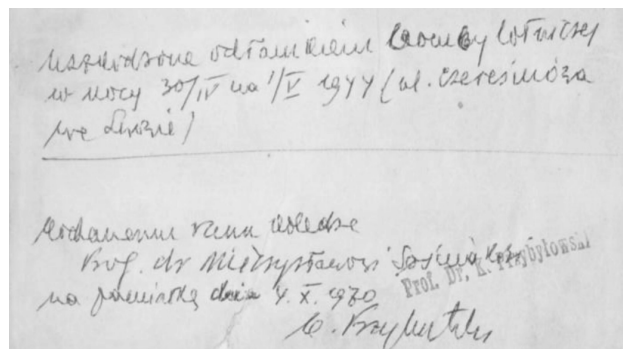 uszkodzone odłamkiem bomby lotniczej
w nocy 30/IV na 1/V 1944 (ul. Czereśniowa
we Lwowie)
Kochanemu Panu Koledze
Prof. dr Mieczysławowi
Prof. Dr. K. Przybyłowski
na pamiątkę dnia 4. X. 1970
K. Przybyłowski